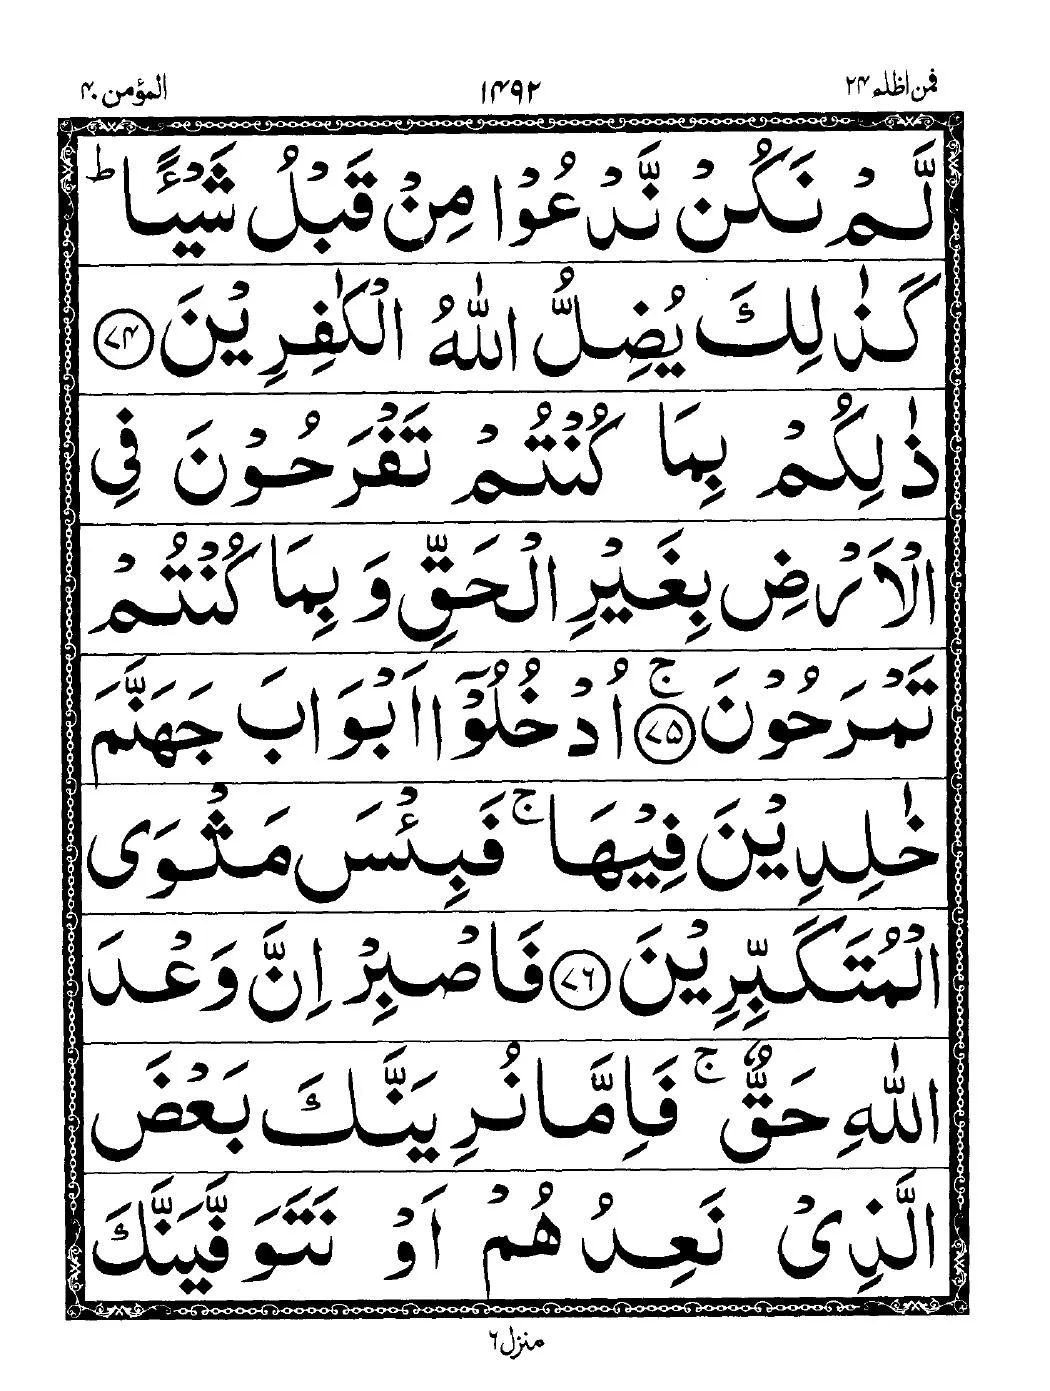 المؤمن ۴۰ ۱۴۹۲ فمن اظلم ۲۴
لَّمْ نَكُنْ نَّدْعُوْا مِنْ قَبْلُ شَيْـًٔا ؕ
كَذٰلِكَ يُضِلُّ اللّٰهُ الْكٰفِرِيْنَ ﴿۷۴﴾
ذٰلِكُمْ بِمَا كُنْتُمْ تَفْرَحُوْنَ فِي
الْاَرْضِ بِغَيْرِ الْحَقِّ وَ بِمَا كُنْتُمْ
تَمْرَحُوْنَ ﴿۷۵﴾ ۚ اُدْخُلُوْۤا اَبْوَابَ جَهَنَّمَ
خٰلِدِيْنَ فِيْهَا ۚ فَبِئْسَ مَثْوَى
الْمُتَكَبِّرِيْنَ ﴿۷۶﴾ فَاصْبِرْ اِنَّ وَعْدَ
اللّٰهِ حَقٌّ ۚ فَاِمَّا نُرِيَنَّكَ بَعْضَ
الَّذِيْ نَعِدُهُمْ اَوْ نَتَوَفَّيَنَّكَ
منزل ۶